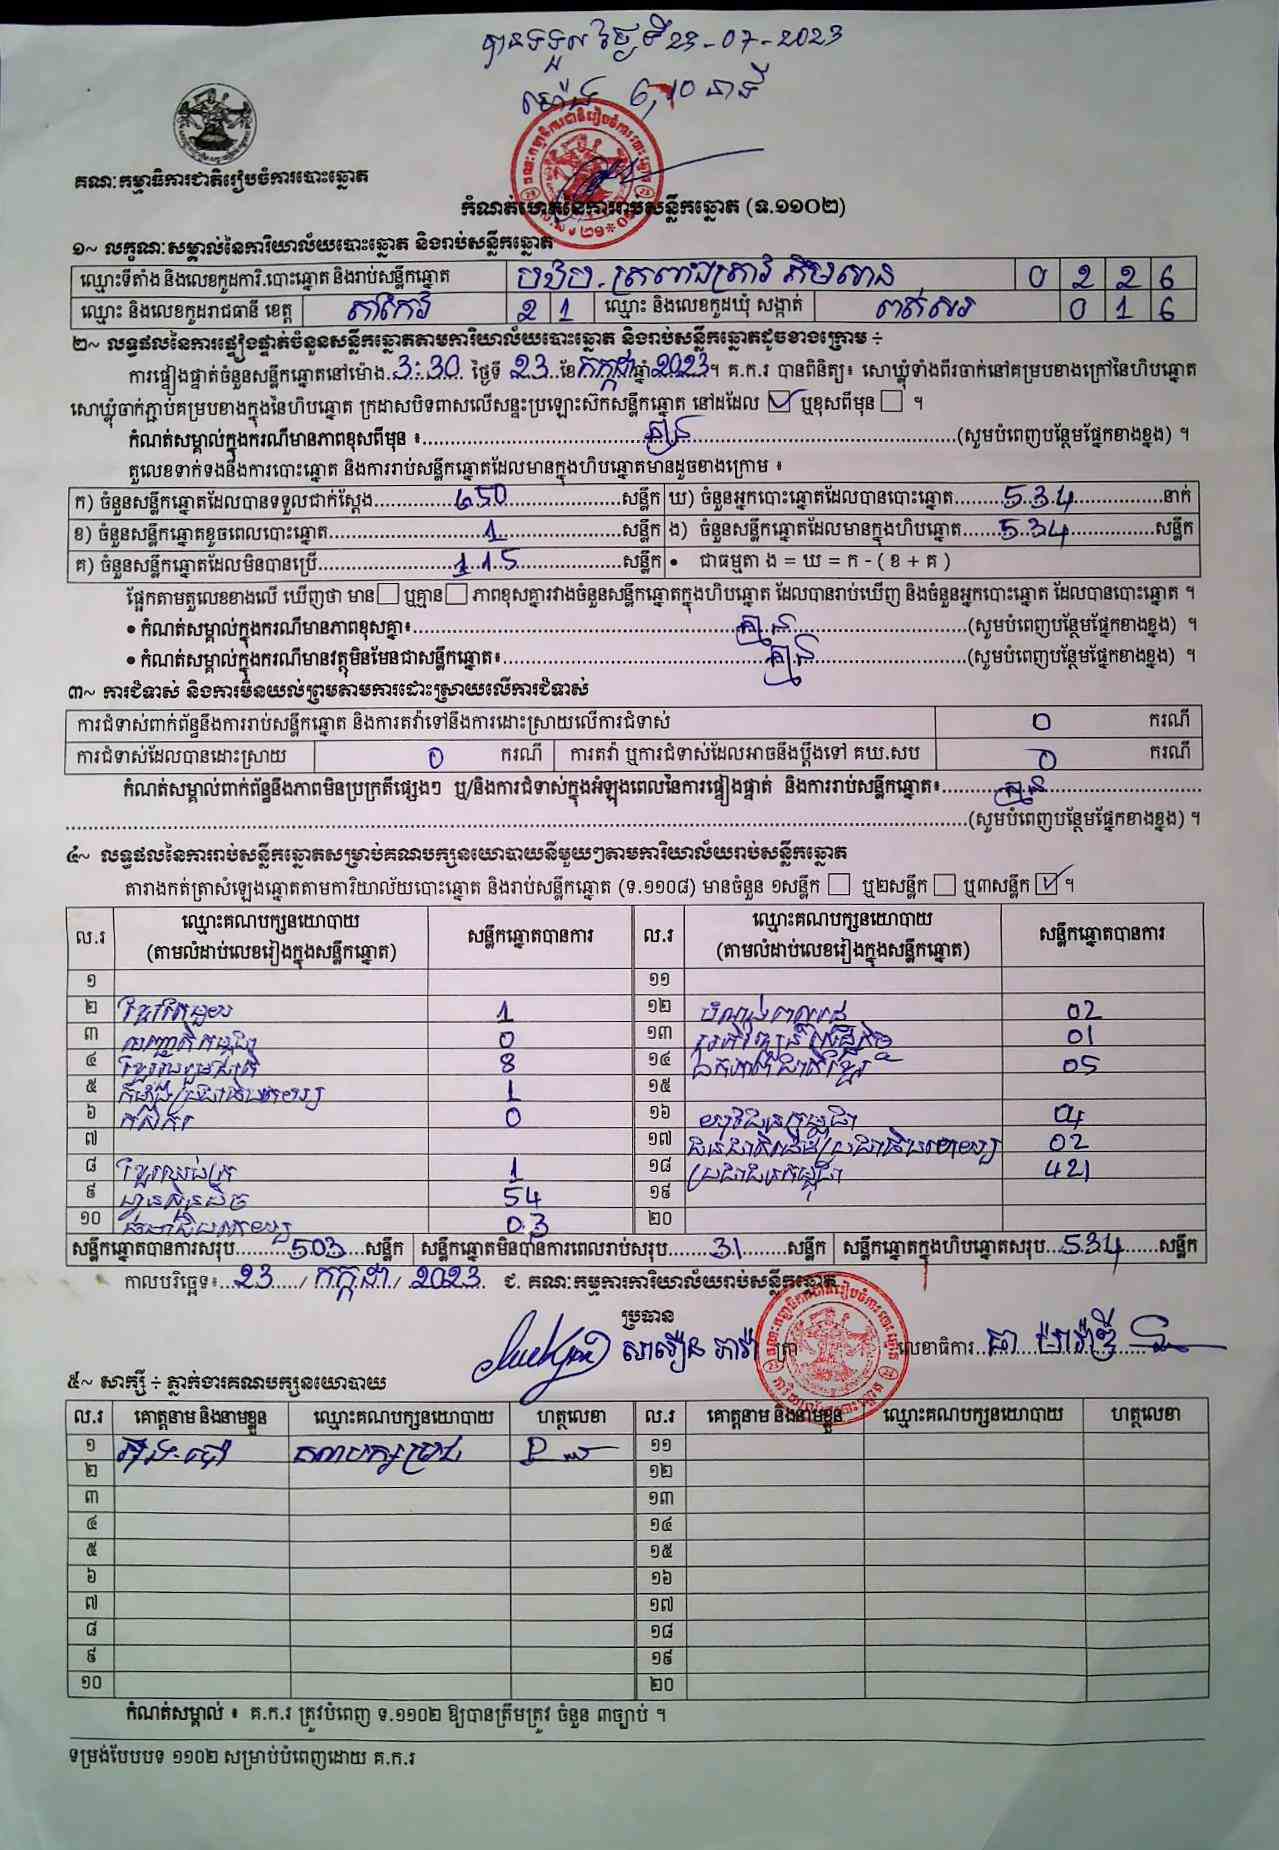 បានទទួល ថ្ងៃទី 23-07-2023
ម៉ោង 6,10 នាទី
គណៈកម្មាធិការជាតិរៀបចំការបោះឆ្នោត
កំណត់ហេតុនៃការរាប់សន្លឹកឆ្នោត (ទ.១១០២)
១~ លក្ខណៈសម្គាល់នៃការិយាល័យបោះឆ្នោត និងរាប់សន្លឹកឆ្នោត
ឈ្មោះទីតាំង និងលេខកូដការិ.បោះឆ្នោត និងរាប់សន្លឹកឆ្នោត 0 2 2 6
ឈ្មោះ និងលេខកូដរាជធានី ខេត្ត តាកែវ 2 1 ឈ្មោះ និងលេខកូដឃុំ សង្កាត់ ពត់សរ 0 1 6
២~ លទ្ធផលនៃការផ្ទៀងផ្ទាត់ចំនួនសន្លឹកឆ្នោតតាមការិយាល័យបោះឆ្នោត និងរាប់សន្លឹកឆ្នោតដូចខាងក្រោម ÷
ការផ្ទៀងផ្ទាត់ចំនួនសន្លឹកឆ្នោតនៅម៉ោង 3:30 ថ្ងៃទី 23 ខែ កក្កដា ឆ្នាំ 2023 ។ គ.ក.រ បានពិនិត្យ៖ សោឃ្លុំទាំងពីរចាក់នៅគម្របខាងក្រៅនៃហិបឆ្នោត
សោឃ្លុំចាក់ភ្ជាប់គម្របខាងក្នុងនៃហិបឆ្នោត ក្រដាសបិទពាសលើសន្ទះប្រឡោះស៊កសន្លឹកឆ្នោត នៅដដែល ☑ ឬខុសពីមុន ☐ ។
កំណត់សម្គាល់ក្នុងករណីមានភាពខុសពីមុន ៖ គ្មាន (សូមបំពេញបន្ថែមផ្នែកខាងខ្នង) ។
តួលេខទាក់ទងនឹងការបោះឆ្នោត និងការរាប់សន្លឹកឆ្នោតដែលមានក្នុងហិបឆ្នោតមានដូចខាងក្រោម ៖
ក) ចំនួនសន្លឹកឆ្នោតដែលបានទទួលជាក់ស្តែង 650 សន្លឹក ឃ) ចំនួនអ្នកបោះឆ្នោតដែលបានបោះឆ្នោត 534 នាក់
ខ) ចំនួនសន្លឹកឆ្នោតខូចពេលបោះឆ្នោត 1 សន្លឹក ង) ចំនួនសន្លឹកឆ្នោតដែលមានក្នុងហិបឆ្នោត 534 សន្លឹក
គ) ចំនួនសន្លឹកឆ្នោតដែលមិនបានប្រើ 115 សន្លឹក • ជាធម្មតា ង = ឃ = ក - ( ខ + គ )
ផ្អែកតាមតួលេខខាងលើ ឃើញថា មាន ☐ ឬគ្មាន ☐ ភាពខុសគ្នារវាងចំនួនសន្លឹកឆ្នោតក្នុងហិបឆ្នោត ដែលបានរាប់ឃើញ និងចំនួនអ្នកបោះឆ្នោត ដែលបានបោះឆ្នោត ។
• កំណត់សម្គាល់ក្នុងករណីមានភាពខុសគ្នា៖ គ្មាន (សូមបំពេញបន្ថែមផ្នែកខាងខ្នង) ។
• កំណត់សម្គាល់ក្នុងករណីមានវត្ថុមិនមែនជាសន្លឹកឆ្នោត៖ គ្មាន (សូមបំពេញបន្ថែមផ្នែកខាងខ្នង) ។
៣~ ការជំទាស់ និងការមិនយល់ព្រមតាមការដោះស្រាយលើការជំទាស់
ការជំទាស់ពាក់ព័ន្ធនឹងការរាប់សន្លឹកឆ្នោត និងការតវ៉ាទៅនឹងការដោះស្រាយលើការជំទាស់ 0 ករណី
ការជំទាស់ដែលបានដោះស្រាយ 0 ករណី ការតវ៉ា ឬការជំទាស់ដែលអាចនឹងប្តឹងទៅ គឃ.សប 0 ករណី
កំណត់សម្គាល់ពាក់ព័ន្ធនឹងភាពមិនប្រក្រតីផ្សេងៗ ឬ/និងការជំទាស់ក្នុងអំឡុងពេលនៃការផ្ទៀងផ្ទាត់ និងការរាប់សន្លឹកឆ្នោត៖ គ្មាន
(សូមបំពេញបន្ថែមផ្នែកខាងខ្នង) ។
៤~ លទ្ធផលនៃការរាប់សន្លឹកឆ្នោតសម្រាប់គណបក្សនយោបាយនីមួយៗតាមការិយាល័យរាប់សន្លឹកឆ្នោត
តារាងកត់ត្រាសំឡេងឆ្នោតតាមការិយាល័យបោះឆ្នោត និងរាប់សន្លឹកឆ្នោត (ទ.១១០៨) មានចំនួន ១សន្លឹក ☐ ឬ២សន្លឹក ☐ ឬ៣សន្លឹក ☑ ។
ល.រ ឈ្មោះគណបក្សនយោបាយ (តាមលំដាប់លេខរៀងក្នុងសន្លឹកឆ្នោត) សន្លឹកឆ្នោតបានការ ល.រ ឈ្មោះគណបក្សនយោបាយ (តាមលំដាប់លេខរៀងក្នុងសន្លឹកឆ្នោត) សន្លឹកឆ្នោតបានការ
១ ១១
២ ខ្មែរតែមួយ 1 ១២ 02
៣ សញ្ជាតិកម្ពុជា 0 ១៣ 01
៤ ខ្មែររួបរួមជាតិ 8 ១៤ ឯកភាពជាតិខ្មែរ 05
៥ កម្លាំងប្រជាធិបតេយ្យ 1 ១៥
៦ កសិករ 0 ១៦ យុវជនកម្ពុជា 04
៧ ១៧ 02
៨ ខ្មែរឈប់ក្រ 1 ១៨ ប្រជាជនកម្ពុជា 421
៩ ហ្វ៊ុនស៊ិនប៉ិច 54 ១៩
១០ 03 ២០
សន្លឹកឆ្នោតបានការសរុប 503 សន្លឹក សន្លឹកឆ្នោតមិនបានការពេលរាប់សរុប 31 សន្លឹក សន្លឹកឆ្នោតក្នុងហិបឆ្នោតសរុប 534 សន្លឹក
កាលបរិច្ឆេទ៖ 23 / កក្កដា / 2023 ជ. គណៈកម្មការការិយាល័យរាប់សន្លឹកឆ្នោត
ប្រធាន
ត្រា លេខាធិការ
៥~ សាក្សី ÷ ភ្នាក់ងារគណបក្សនយោបាយ
ល.រ គោត្តនាម និងនាមខ្លួន ឈ្មោះគណបក្សនយោបាយ ហត្ថលេខា ល.រ គោត្តនាម និងនាមខ្លួន ឈ្មោះគណបក្សនយោបាយ ហត្ថលេខា
១ ១១
២ ១២
៣ ១៣
៤ ១៤
៥ ១៥
៦ ១៦
៧ ១៧
៨ ១៨
៩ ១៩
១០ ២០
កំណត់សម្គាល់ ៖ គ.ក.រ ត្រូវបំពេញ ទ.១១០២ ឱ្យបានត្រឹមត្រូវ ចំនួន ៣ច្បាប់ ។
ទម្រង់បែបបទ ១១០២ សម្រាប់បំពេញដោយ គ.ក.រ